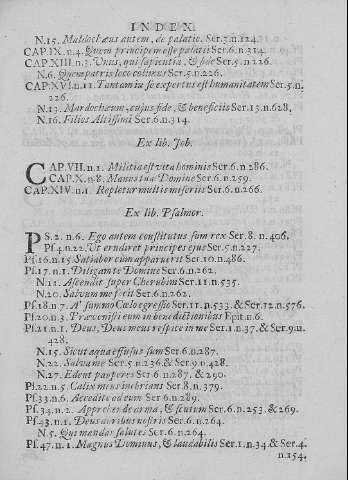 INDEX.
N.15. Maldochæus autem, de palatio. Ser.5.n.124.
CAP.IX.n.4. Quem principem esse palatii Ser.6.n.314.
CAP.XIII.n.3. Unus, qui sapientia, & fide Ser.5.n.226.
N.6. Quem patris loco colimus Ser.5.n.226.
CAP.XVI.n.11. Tantam in se expertus est humanitatem Ser.5.n.
226.
N.13. Mardochæum, cujus fide, & beneficiis Ser.13.n.628,
N.16. Filios Altissimi Ser.6.n.314.
Ex lib. Job.
CAP.VII.n.1. Militia est vita hominis Ser.6.n.286.
CAP.X.n.8. Manus tuæ Domine Ser.6.n.259.
CAP.XIV.n.1. Repletur multis miseriis Ser.6.n.266.
Ex lib. Psalmor.
PS.2. n.6. Ego autem constitutus sum rex Ser.8. n.406.
Ps.4.n.22. Ut erudiret principes ejus Ser.5.n.227.
Ps.16.n.15. Satiabor cum apparuerit Ser.10.n.486.
Ps.17.n.1. Diligam te Domine Ser.6.n.262.
N.11. Ascendit super Cherubim Ser.11.n.535.
N.20. Salvum me fecit Ser.6.n.262.
Ps.18.n.7. A' summo Cælo egressio Ser.11.n.533.& Ser.12.n.576.
Ps.20.n.3. Prævenisti eum in benedictionibus Epit.n.6.
Ps.21.n.1. Deus, Deus meus respice in me Ser.1.n.37.& Ser.9.n.
428.
N.15. Sicut aqua effusus sum Ser.6.n.287.
N.22. Salva me Ser.5.n.236.& Ser.9.n.428.
N.27. Edent pauperes Ser.6.n.287. & 290.
Ps.22.n.5. Calix meus inebrians Ser.8.n.379.
Ps.33.n.6. Accedite ad eum Ser.6.n.289.
Ps.34.n.2. Apprehende arma, & scutum Ser.6.n.253.&269.
Ps.43.n.1. Deus auribus nostris Ser.6.n.264.
N.5. Qui mandas salutes Ser.6.n.264.
Ps.47.n.1. Magnus Dominus, & laudabilis Ser.1.n.34.& Ser.4.
n.154.